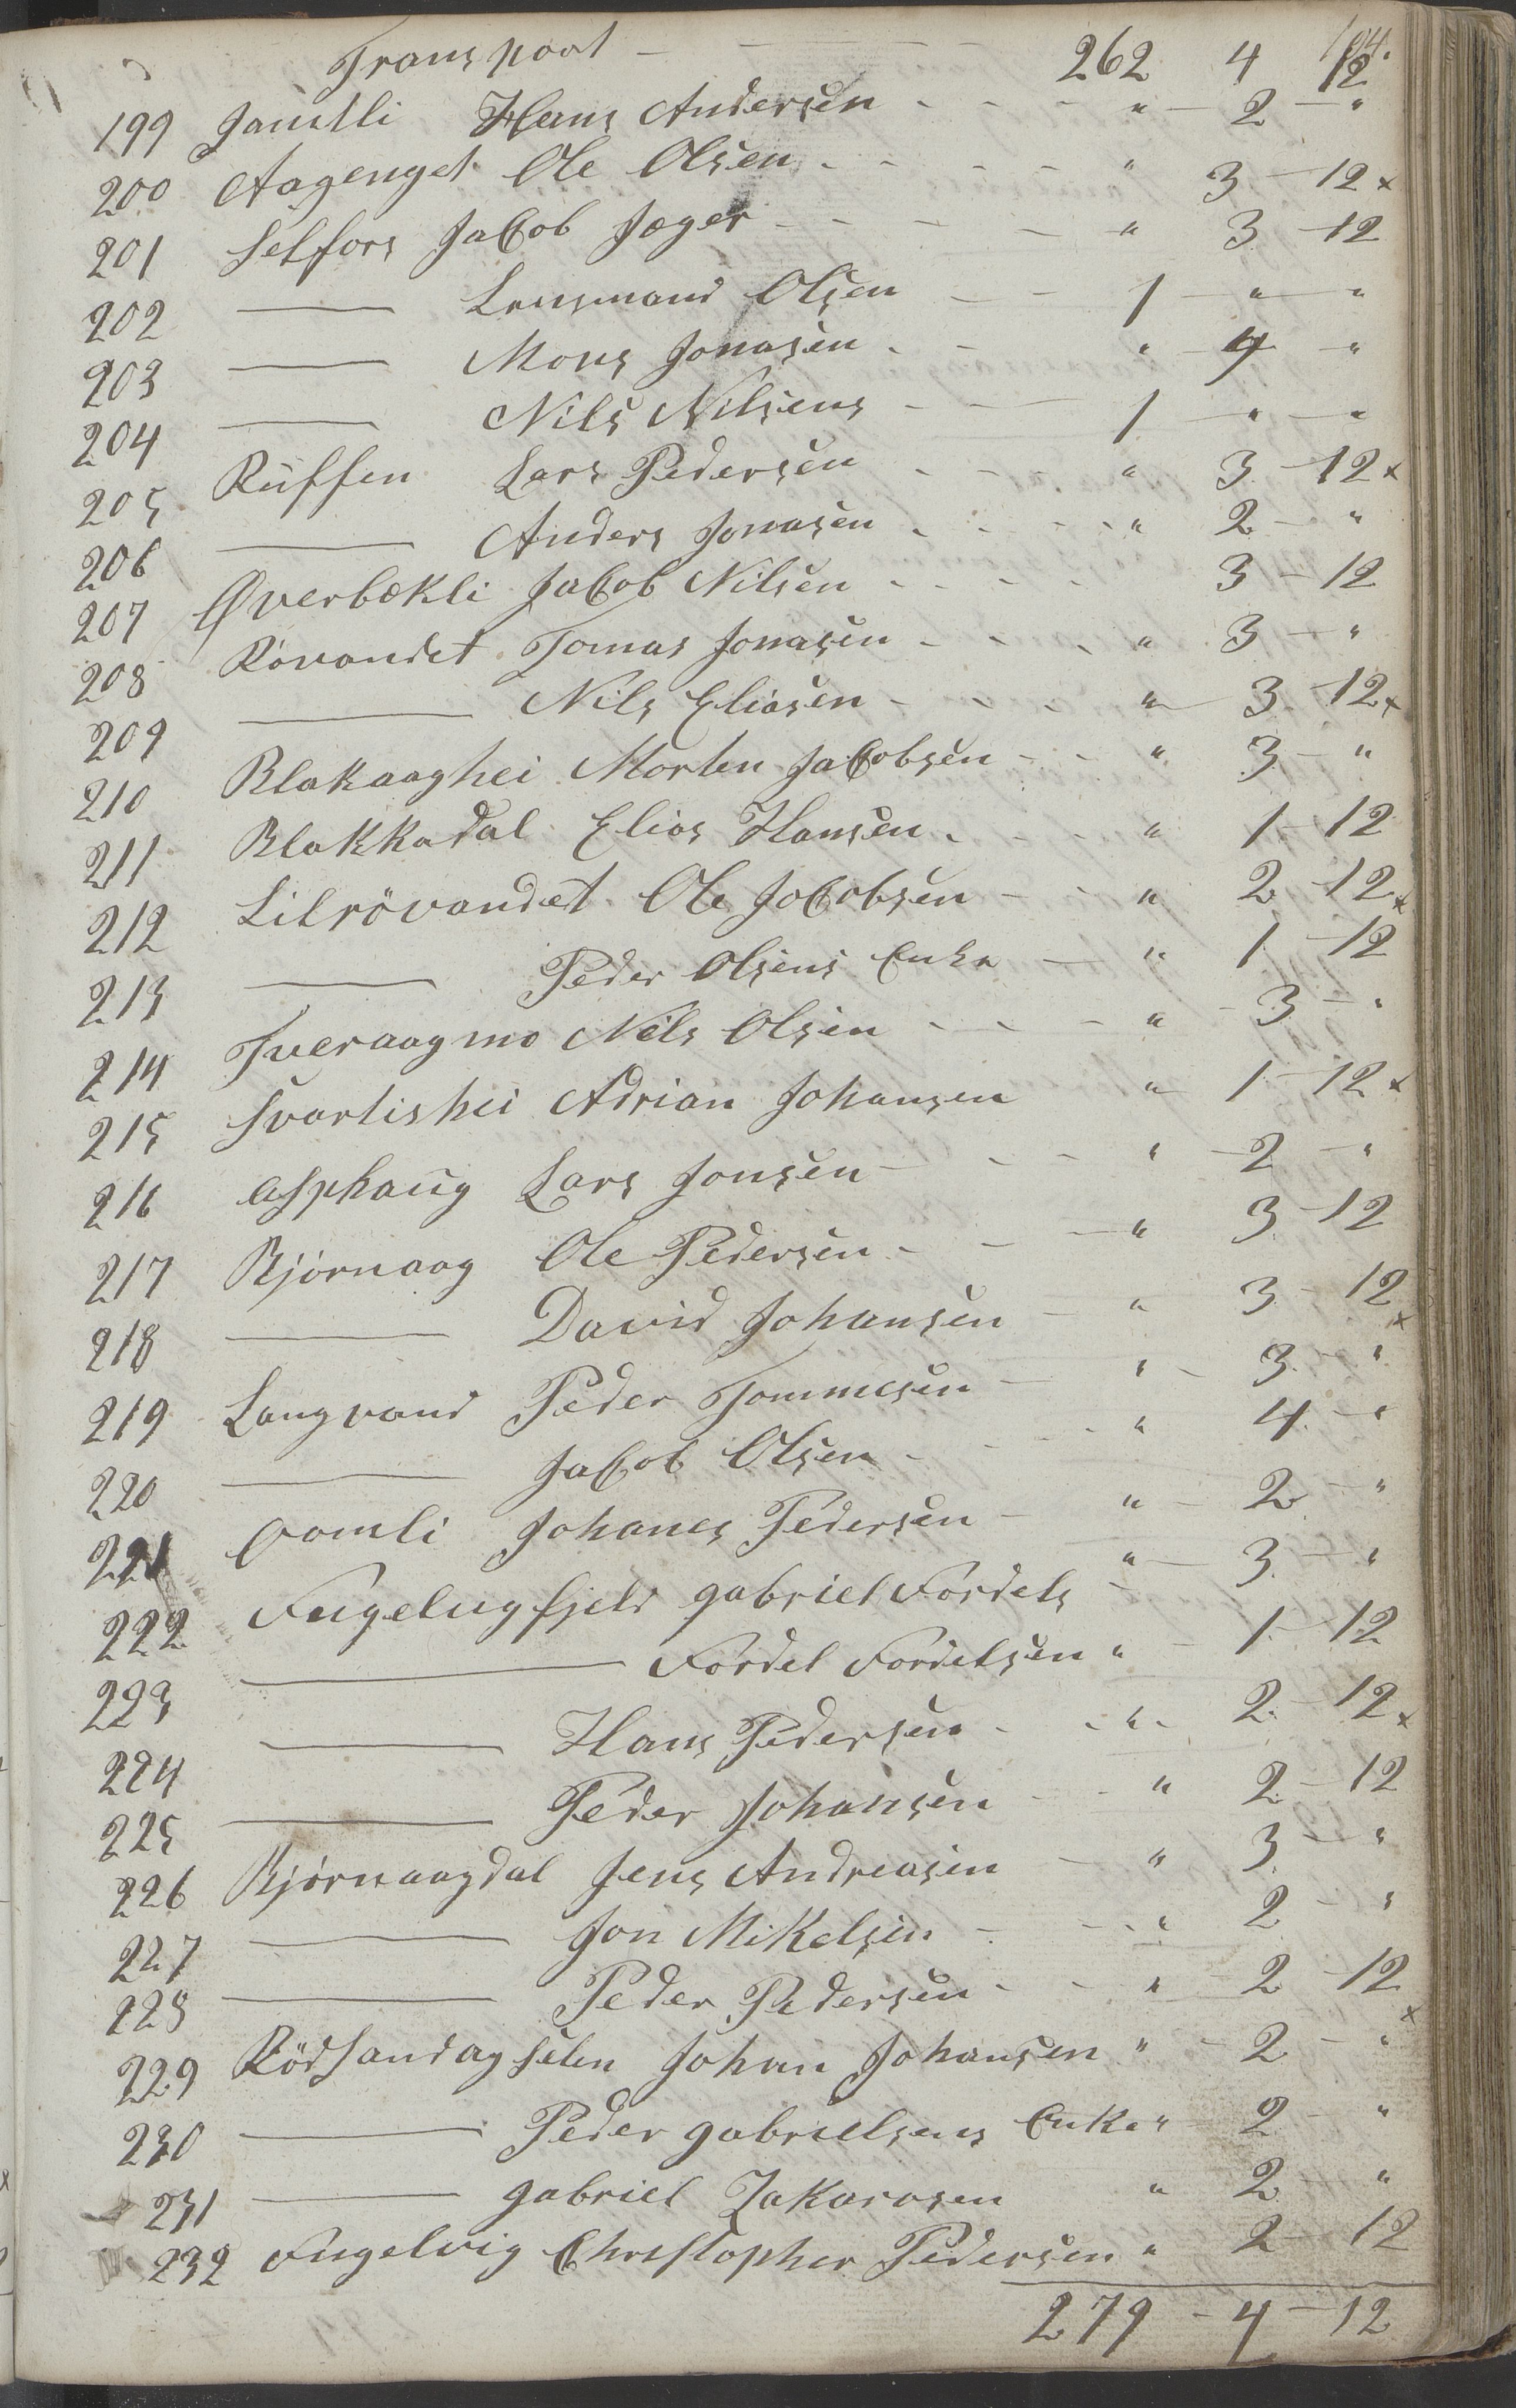 104.
Transport - - - 262 4 12
199 Jamtli Hans Andersen - - - " - 2 - "
200 Aagenget Ole Olsen - - - " 3 - 12 x
201 Selfors Jacob Jæger - - - " 3 - 12
202 —— Lensmand Olsen - - 1 - " - "
203 —— Mons Jonasen - - " - 4 - "
204 —— Nils Nilsens - - 1 - " - "
205 Ruffen Lars Pedersen - - - " 3 - 12 x
206 —— Anders Jonasen - - - " 2 - "
207 Øverbækli Jacob Nilsen - - - - 3 - 12
208 Røvandet Tomas Jonasen - - - " 3 - "
209 —— Nils Eliasen - - - " - 3 - 12 x
210 Blakaaghei Morten Jacobsen - - " 3 - "
211 Blakkadal Elias Hansen - - - " 1 - 12
212 Lilrövandet Ole Jacobsen - - " 2 - 12 x
213 —— Peder Olsens Enke - " 1 - 12
214 Tveraagmo Nils Olsen - - - " - 3 - "
215 Svartishei Adrian Johansen " - 1 - 12 x
216 Asphaug Lars Jonsen - - - " - 2 - "
217 Bjørnaag Ole Pedersen - - - " 3 - 12
218 —— David Johansen - " 3 - 12 x
219 Langvand Peder Tommesen - " - 3 - "
220 —— Jacob Olsen - - - " 4 - "
221 Oomli Johanes Pedersen - " - 2 - "
222 Fugelugfjeld Gabriel Fordels - " - 3 - "
223 —— Fordel Fordelsen " - 1 - 12
224 —— Hans Pedersen - - " - 2 - 12 x
225 —— Peder Johansen - - " 2 - 12
226 Bjørnaagdal Jens Andreasen - " 3 - "
227 —— Jon Mikelsen - - - " 2 - "
228 —— Peder Pedersen - - " - 2 - 12 x
229 Rödsandagselen Johan Johansen " - 2 - "
230 —— Peder Gabrielsens Enke " 2 - "
231 —— Gabriel Zakarasen " 2 - "
232 Fugelvig Christopher Pedersen " 2 - 12
279 - 4 - 12